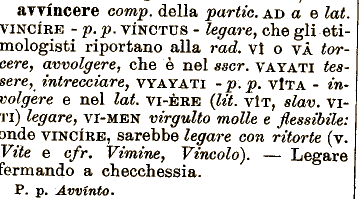 avvíncere comp. della partic. AD a e lat.
VINCÍRE - p. p. VÍNCTUS - legare, che gli eti-
mologisti riportano alla rad. VÌ o VÂ tor-
cere, avvolgere, che è nel sscr. VAYATI tes-
sere, intrecciare, VYAYATI - p. p. VÎTA - in-
volgere e nel lat. VI-ÈRE (lit. VÌT, slav. VI-
TI) legare, VI-MEN virgulto molle e flessibile:
onde VINCÍRE, sarebbe legare con ritorte (v.
Vite e cfr. Vimine, Vincolo). — Legare
fermando a checchessia.
P. p. Avvinto.